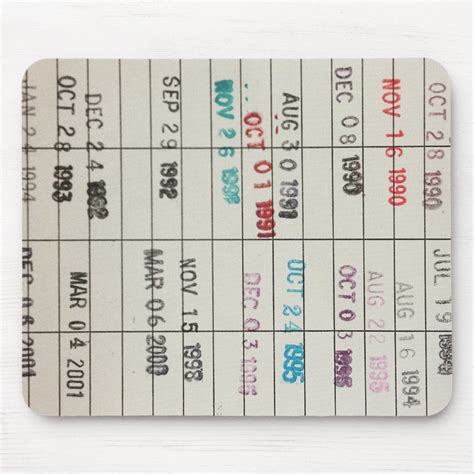 OCT 28 1990
NOV 16 1990
DEC 08 1990
AUG 30 1991
OCT 01 1991
NOV 26
SEP 29 1992
DEC 24 1992
OCT 28 1993
JAN 24 1994
JUL 19 1994
AUG 16 1994
AUG 22 1995
OCT 03 1995
OCT 24 1995
DEC 03 1995
NOV 15 1998
MAR 06 2000
MAR 04 2001
DEC 06 2001